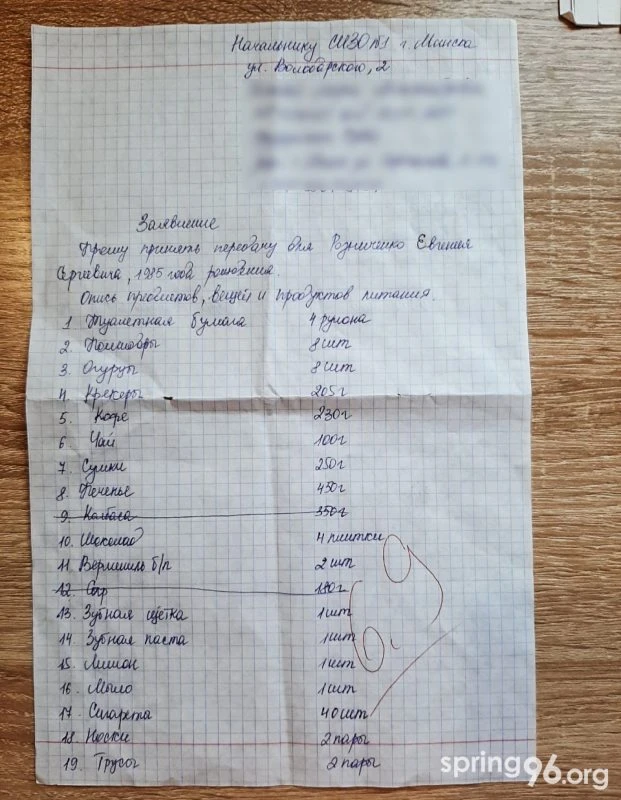 Начальнику СИЗО №1 г. Минска
ул. Володарского, 2
Заявление
Прошу принять передачу для Резниченко Евгения
Сергеевича, 1985 года рождения.
Опись предметов, вещей и продуктов питания.
1 Туалетная бумага 4 рулона
2. Помидоры 8 шт
3. Огурцы 8 шт
4. Крекеры 205 г
5. Кофе 230 г
6. Чай 100 г
7. Сушки 250 г
8. Печенье 450 г
9. Колбаса 350 г
10. Шоколад 4 плитки
11. Вермишель б/п 2 шт
12. Сыр 180 г
13. Зубная щетка 1 шт
14. Зубная паста 1 шт
15. Лимон 1 шт
16. Мыло 1 шт
17. Сигареты 40 шт
18. Носки 2 пары
19. Трусы 2 пары
6,9
spring96.org